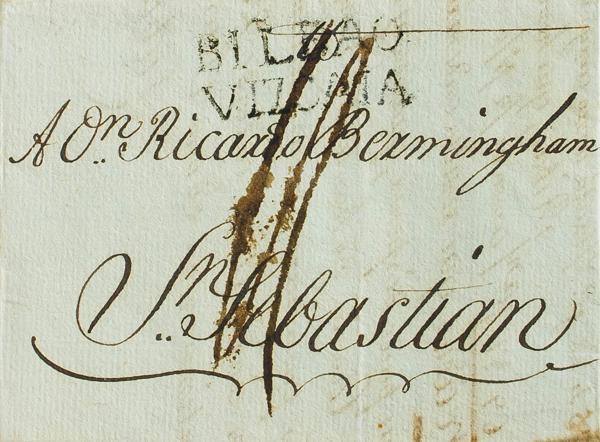 BILBAO
VIZCAIA
A Dn. Ricardo Bermingham
Sn. Sebastian